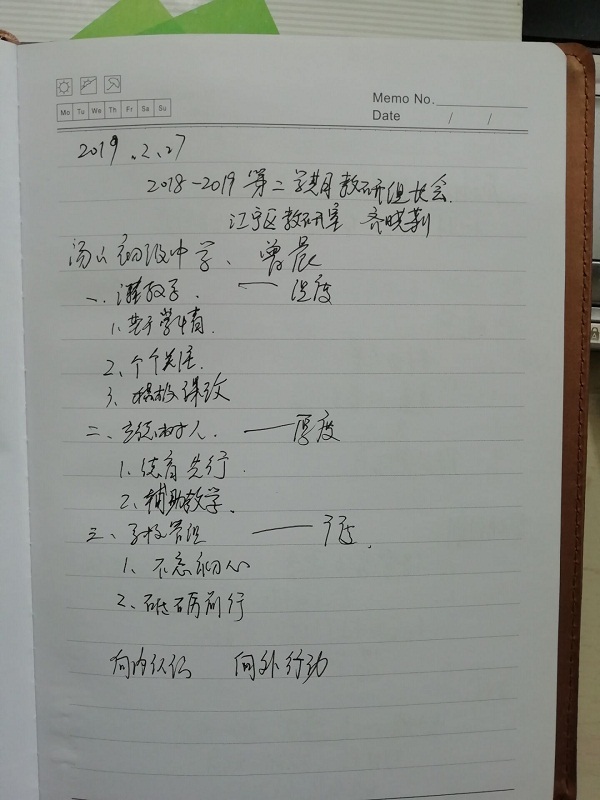 Mo Tu We Th Fr Sa Su
Memo No.
Date / /
2019.2.27
2018-2019第二学期教研组长会.
江宁区教研室 齐晓
汤山初级中学、曾晨
一、教学. —— 温度
1.基于学情.
2、个个关注.
3、积极课改
二、立德树人. —— 厚度
1.德育先行.
2.辅助教学.
三、学校管理 ——
1、不忘初心
2、砥砺前行
向内认识 向外行动